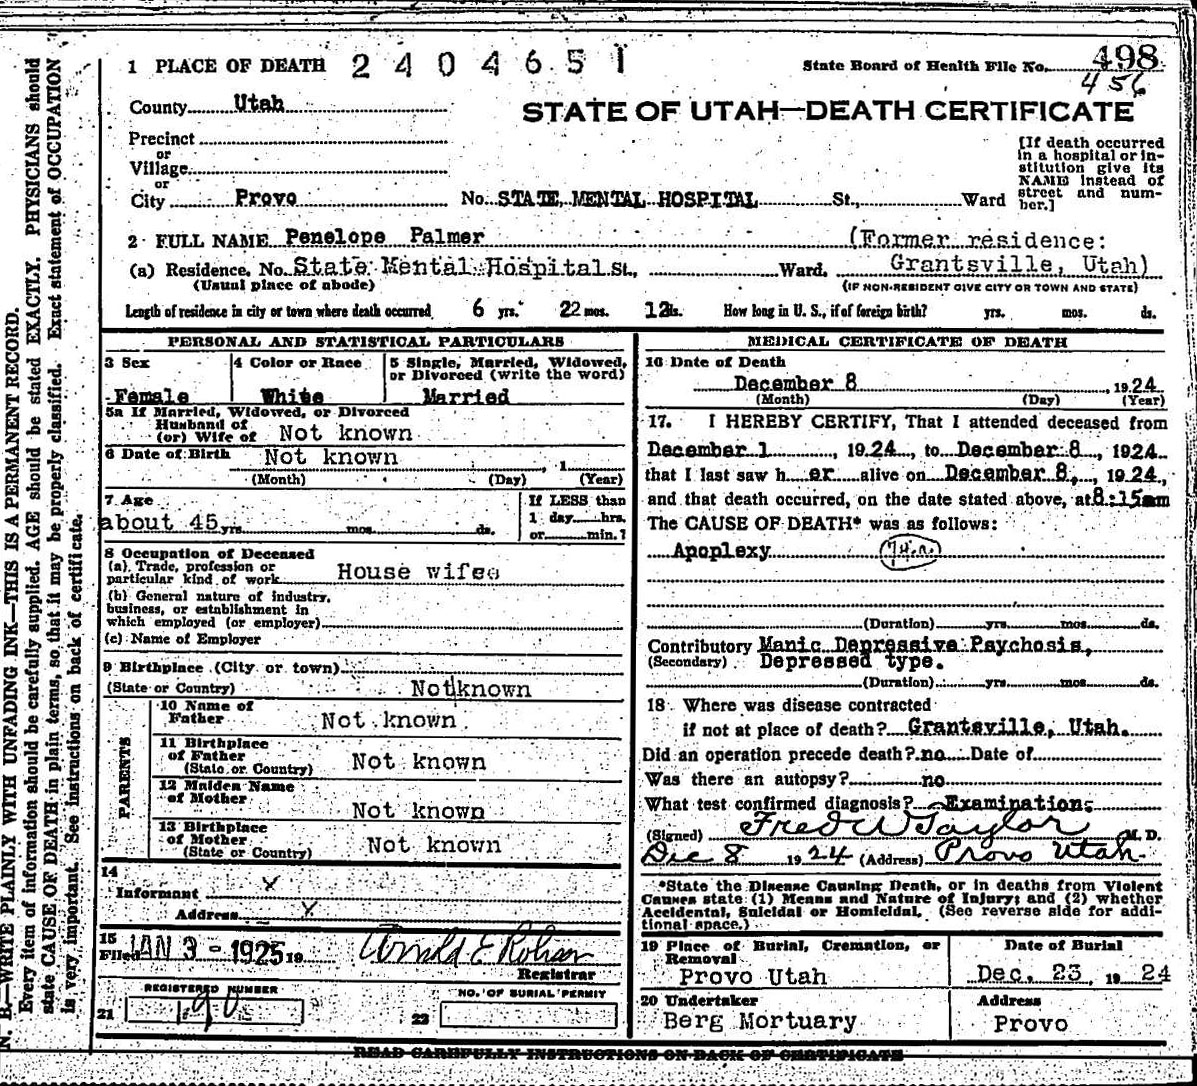 1 PLACE OF DEATH 2404651
State Board of Health File No. 498
456
County Utah
STATE OF UTAH—DEATH CERTIFICATE
Precinct
or
Village
or
City Provo No. STATE MENTAL HOSPITAL St., Ward
[If death occurred
in a hospital or in-
stitution give its
NAME instead of
street and num-
ber.]
2 FULL NAME Penelope Palmer (Former residence:
(a) Residence. No. State Mental Hospital St., Ward. Grantsville, Utah)
(Usual place of abode) (IF NON-RESIDENT GIVE CITY OR TOWN AND STATE)
Length of residence in city or town where death occurred 6 yrs. 22 mos. 12 ds. How long in U. S., if of foreign birth? yrs. mos. ds.
PERSONAL AND STATISTICAL PARTICULARS
3 Sex 4 Color or Race 5 Single, Married, Widowed,
or Divorced (write the word)
Female White Married
5a If Married, Widowed, or Divorced
Husband of
(or) Wife of Not known
6 Date of Birth Not known , 1
(Month) (Day) (Year)
7 Age If LESS than
about 45 yrs. mos. ds. 1 day hrs.
or min.?
8 Occupation of Deceased
(a) Trade, profession or
particular kind of work House wife
(b) General nature of industry,
business, or establishment in
which employed (or employer)
(c) Name of Employer
9 Birthplace (City or town)
(State or Country) Not known
PARENTS
10 Name of
Father Not known
11 Birthplace
of Father
(State or Country) Not known
12 Maiden Name
of Mother
Not known
13 Birthplace
of Mother
(State or Country) Not known
14
Informant x
Address x
15
Filed JAN 3 - 1925 19 Arnold E Rohan
Registrar
REGISTERED NUMBER NO. OF BURIAL PERMIT
21 190 22
MEDICAL CERTIFICATE OF DEATH
16 Date of Death
December 8 , 1924
(Month) (Day) (Year)
17. I HEREBY CERTIFY, That I attended deceased from
December 1 , 1924, to December 8 , 1924
that I last saw h er alive on December 8, , 1924,
and that death occurred, on the date stated above, at 8:15am
The CAUSE OF DEATH* was as follows:
Apoplexy
(Duration) yrs. mos. ds.
Contributory Manic Depressive Psychosis,
(Secondary) Depressed type.
(Duration) yrs. mos. ds.
18 Where was disease contracted
if not at place of death? Grantsville, Utah.
Did an operation precede death? no Date of
Was there an autopsy? no
What test confirmed diagnosis? Examination.
(Signed) Fred W Taylor M. D.
Dec 8 1924 (Address) Provo Utah
*State the Disease Causing Death, or in deaths from Violent
Causes state (1) Means and Nature of Injury; and (2) whether
Accidental, Suicidal or Homicidal. (See reverse side for addi-
tional space.)
19 Place of Burial, Cremation, or
Removal
Provo Utah
Date of Burial
Dec. 23 19 24
20 Undertaker
Berg Mortuary
Address
Provo
READ CAREFULLY INSTRUCTIONS ON BACK OF CERTIFICATE
N. B.—WRITE PLAINLY WITH UNFADING INK—THIS IS A PERMANENT RECORD.
Every item of information should be carefully supplied. AGE should be stated EXACTLY. PHYSICIANS should
state CAUSE OF DEATH in plain terms, so that it may be properly classified. Exact statement of OCCUPATION
is very important. See instructions on back of certificate.